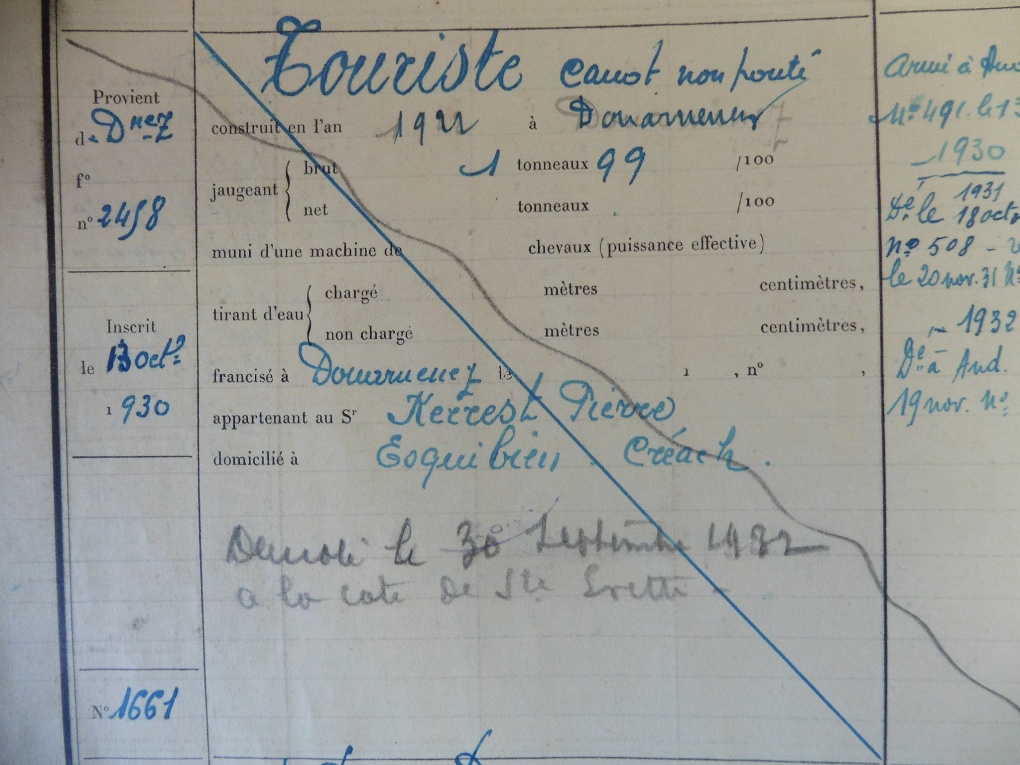 Touriste canot non ponté
Provient
de Dnez
f°
n° 2458
construit en l'an 1922 à Douarnenez
jaugeant { brut 1 tonneaux 99 /100
net tonneaux /100
muni d'une machine de chevaux (puissance effective)
tirant d'eau { chargé mètres centimètres,
non chargé mètres centimètres,
Inscrit
le 13 octe
1930
francisé à Douarnenez le 1 , n° ,
appartenant au Sr Kerrest Pierre
domicilié à Esquibien . Créach .
Démoli le 30 Septembre 1932
a la cote de Ste Evette
N° 1661
Armé à Aud
N° 491. le 13
1930
1931
Dé le 18 octo
n° 508 -
le 20 nov. 31 N°
1932
De à Aud.
19 nov. n°